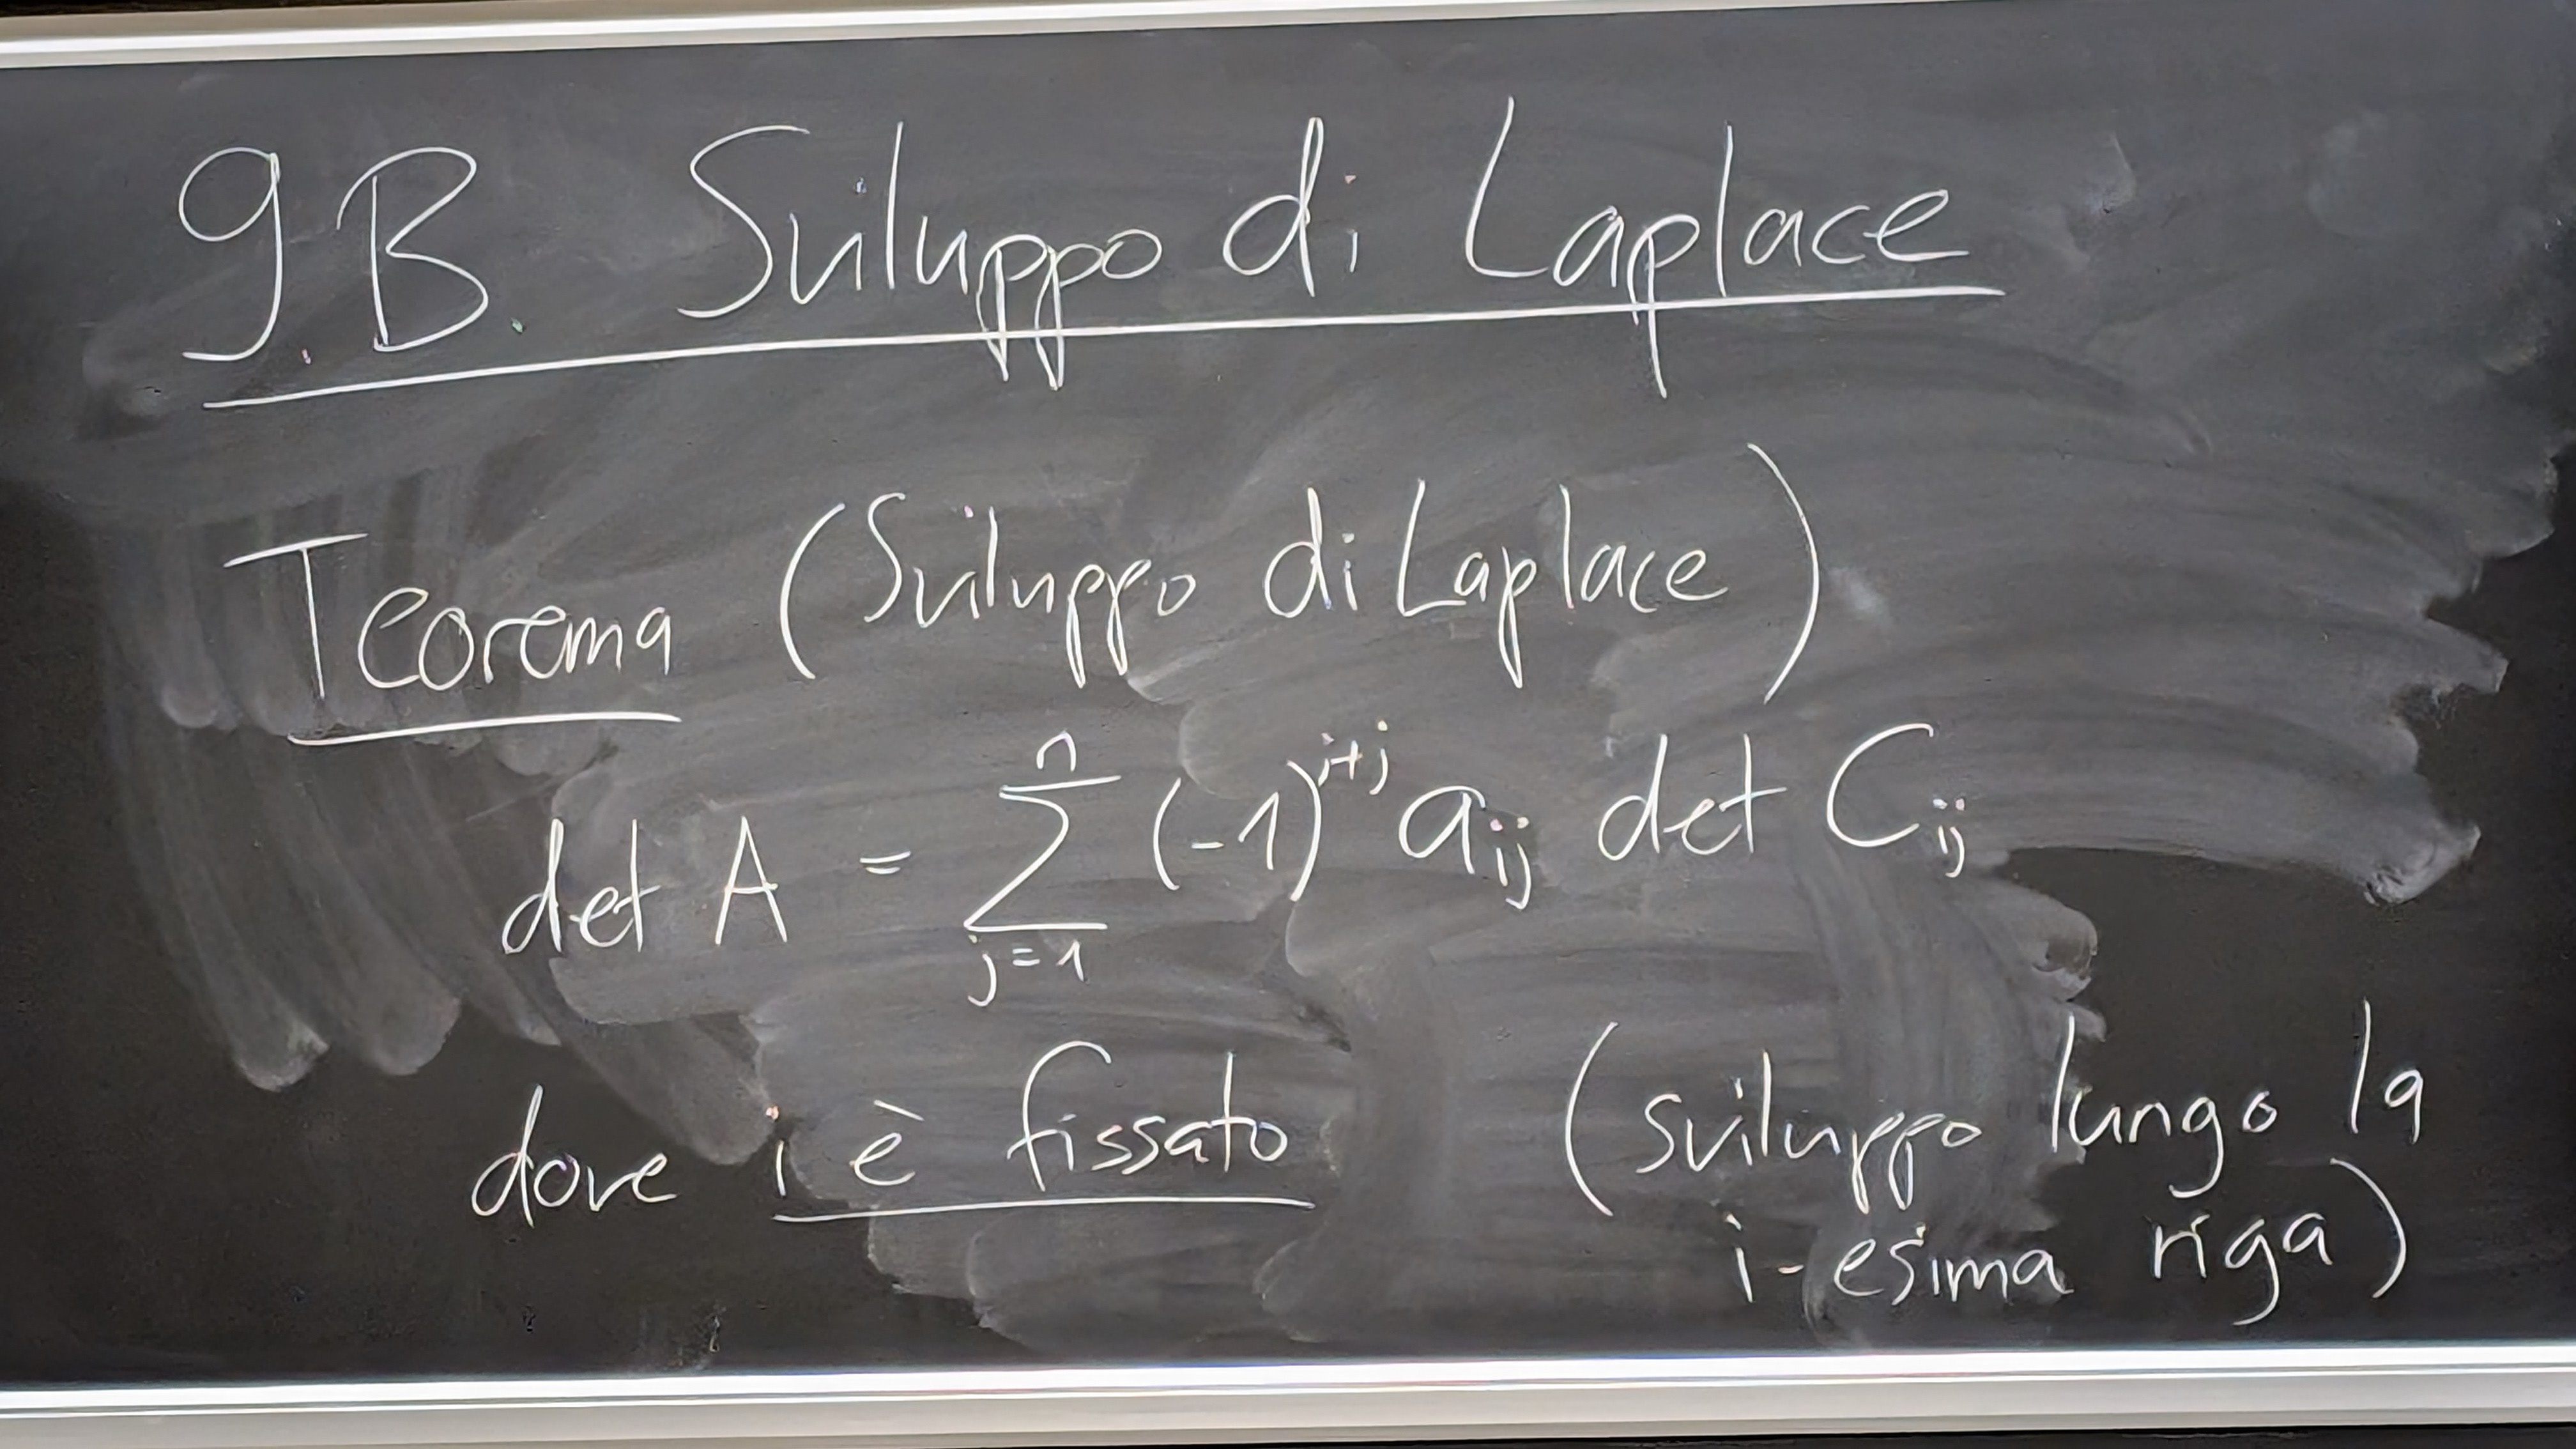 9.B. Sviluppo di Laplace
Teorema (Sviluppo di Laplace)
det A = \sum_{j=1}^{n} (-1)^{i+j} a_{ij} det C_{ij}
dove i è fissato (sviluppo lungo la
i-esima riga)